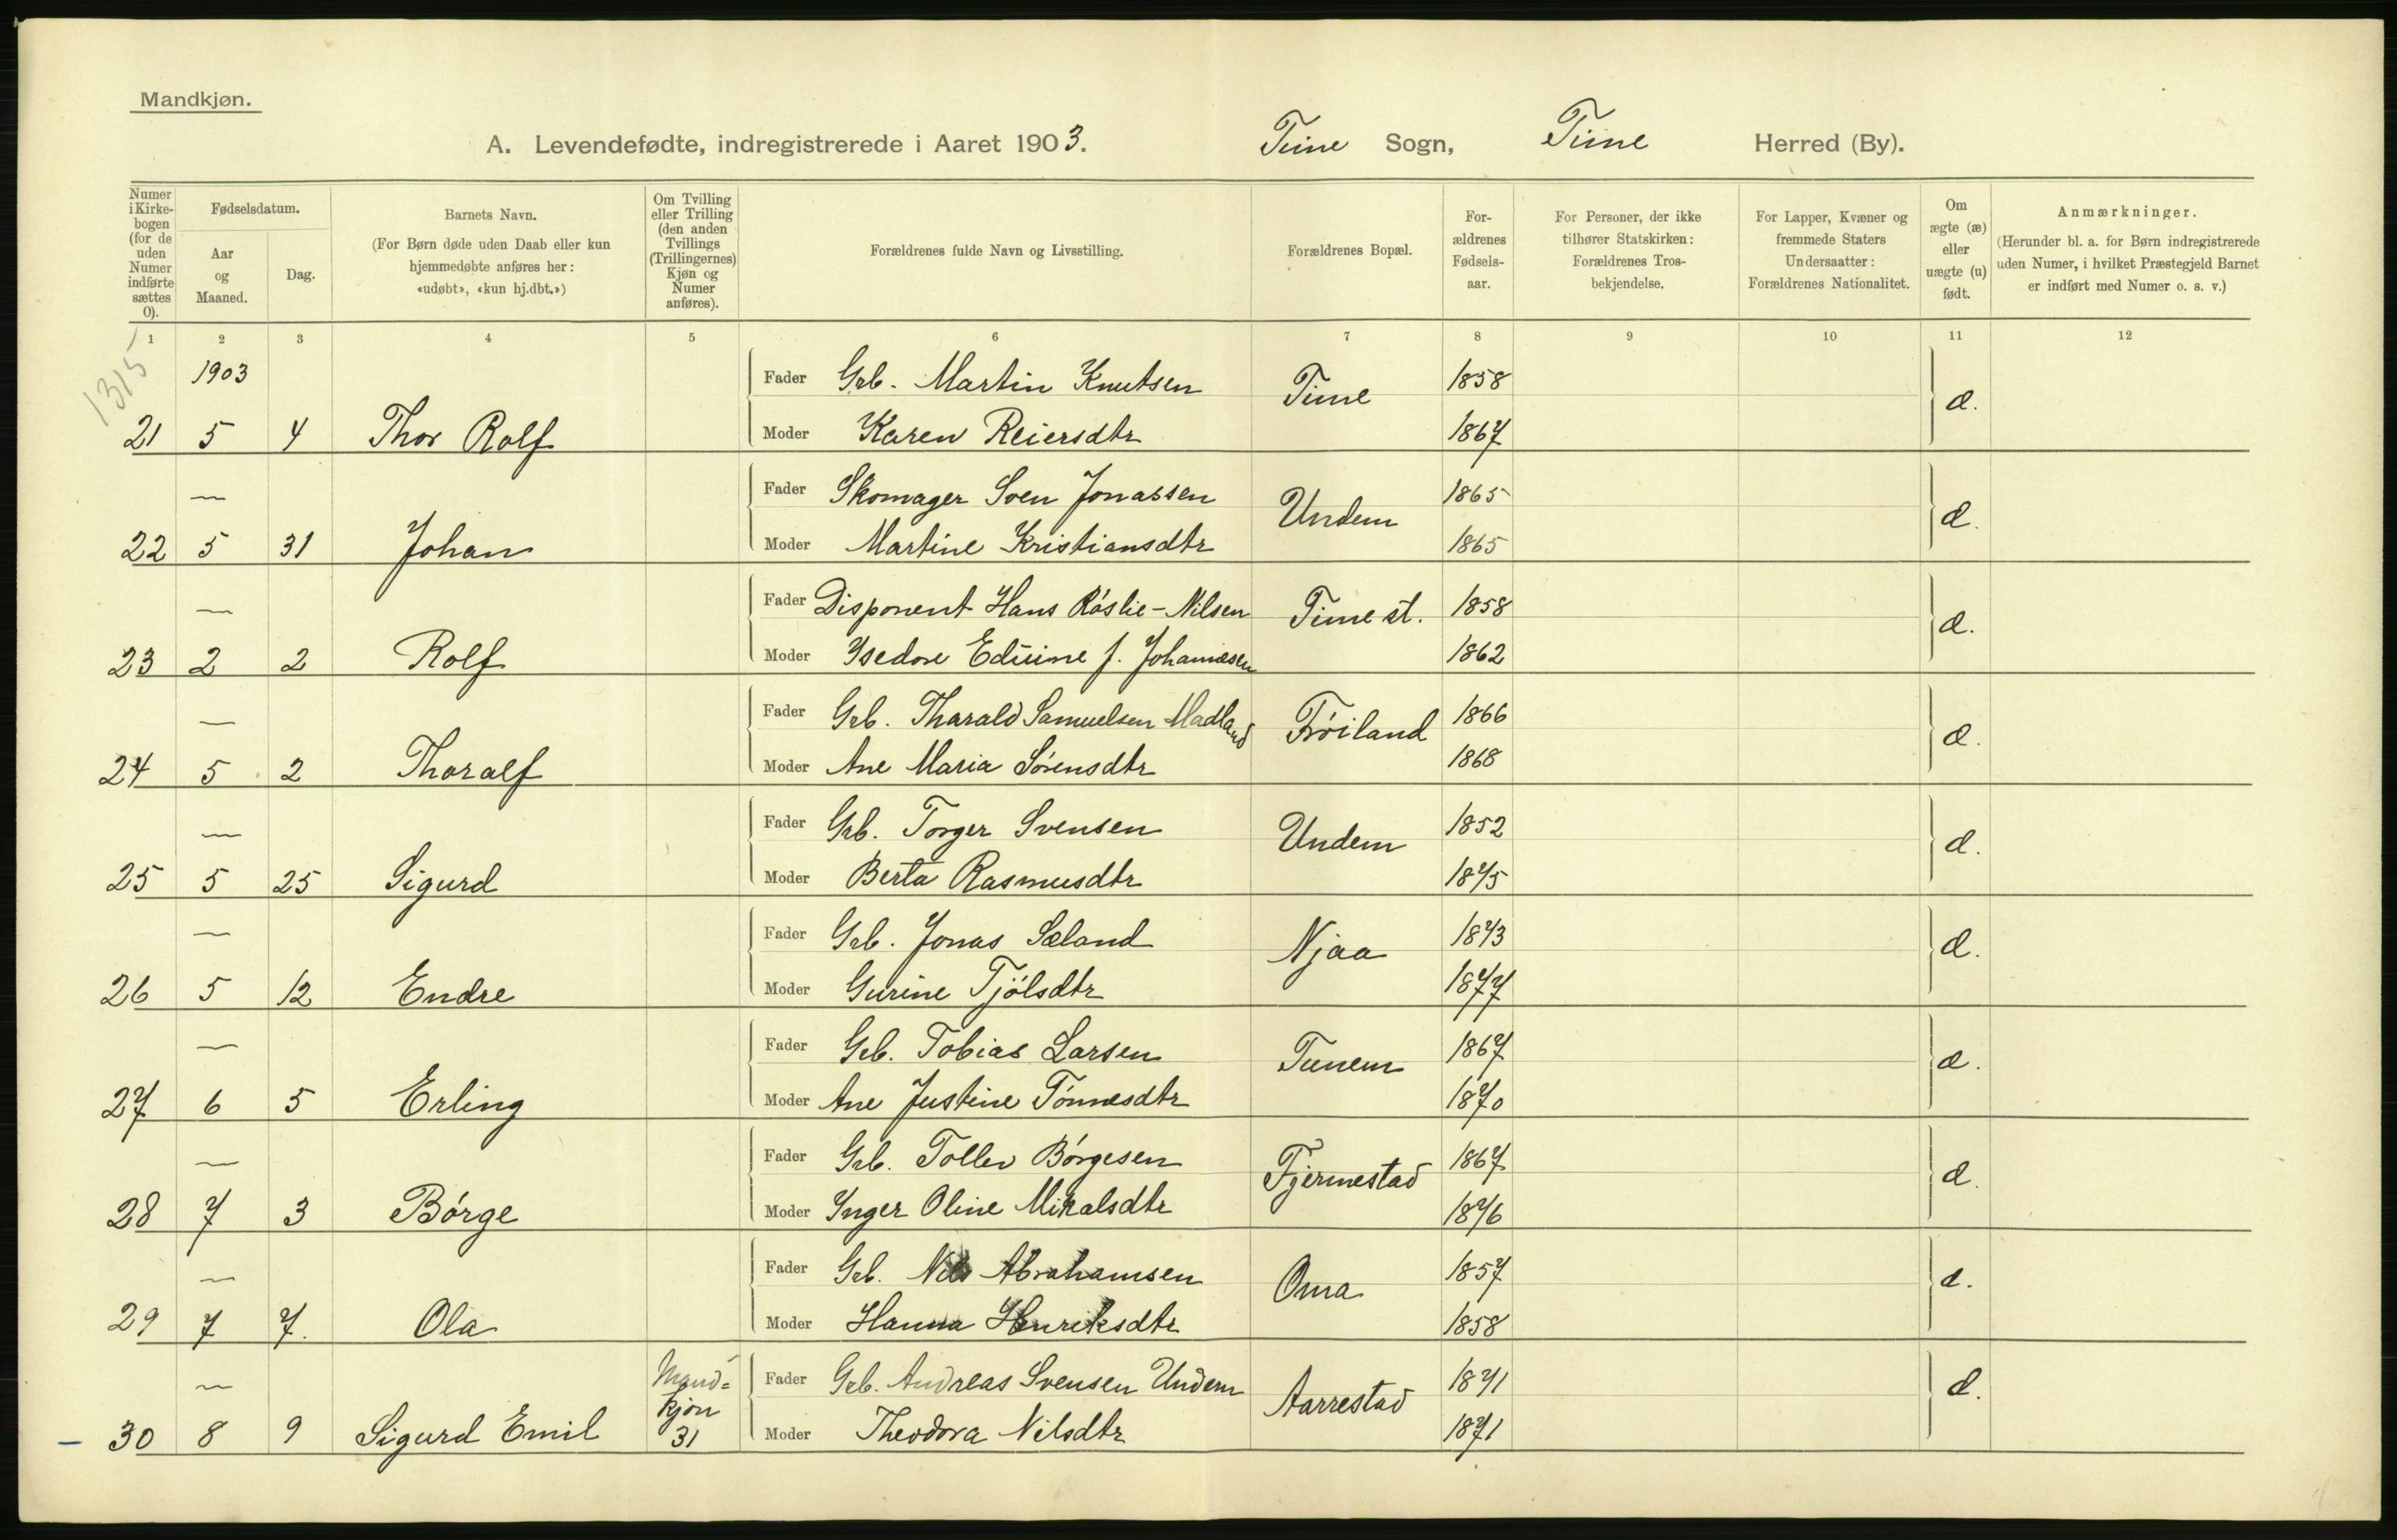 Mandkjøn.
A. Levendefødte, indregistrerede i Aaret 1903. Time Sogn, Time Herred (By).
Numer i Kirke-bogen (for de uden Numer indførte sættes 0).
Fødselsdatum.
Aar og Maaned.
Dag.
Barnets Navn.
(For Børn døde uden Daab eller kun hjemmedøbte anføres her: «udøbt», «kun hj.dbt.»)
Om Tvilling eller Trilling (den anden Tvillings (Trillingernes) Kjøn og Numer anføres).
Forældrenes fulde Navn og Livsstilling.
Forældrenes Bopæl.
For-ældrenes Fødsels-aar.
For Personer, der ikke tilhører Statskirken: Forældrenes Tros-bekjendelse.
For Lapper, Kvæner og fremmede Staters Undersaatter: Forældrenes Nationalitet.
Om ægte (æ) eller uægte (u) født.
Anmærkninger.
(Herunder bl. a. for Børn indregistrerede uden Numer, i hvilket Præstegjeld Barnet er indført med Numer o. s. v.)
1 2 3 4 5 6 7 8 9 10 11 12
1315
1903 Fader Grb. Martin Knutsen Time 1858 æ.
21 5 4 Thor Rolf Moder Karen Reiersdtr 1867
— Fader Skomager Sven Jonassen Undem 1865 æ.
22 5 31 Johan Moder Martine Kristiansdtr 1865
— Fader Disponent Hans Røslie-Nilsen Time st. 1858 æ.
23 2 2 Rolf Moder Isedore Eduine f. Johannesen 1862
— Fader Grb. Tharald Samuelsen Madland Frøiland 1866 æ.
24 5 2 Thoralf Moder Ane Maria Sørensdtr 1868
— Fader Grb. Torger Svensen Undem 1852 æ.
25 5 25 Sigurd Moder Berta Rasmusdtr 1875
— Fader Grb. Jonas Sæland Njaa 1873 æ.
26 5 12 Endre Moder Gurine Tjølsdtr 1877
— Fader Grb. Tobias Larsen Tunem 1867 æ.
27 6 5 Erling Moder Ane Justine Tønnesdtr 1870
— Fader Grb. Tollev Børgesen Fjermestad 1867 æ.
28 7 3 Børge Moder Inger Oline Mikalsdtr 1876
— Fader Grb. Nils Abrahamsen Oma 1857 æ.
29 7 7. Ola Moder Hanna Henriksdtr 1858
— Mand=kjøn 31 Fader Grb. Andreas Svensen Undem Aarrestad 1871 æ.
– 30 8 9 Sigurd Emil Moder Theodora Nilsdtr 1871